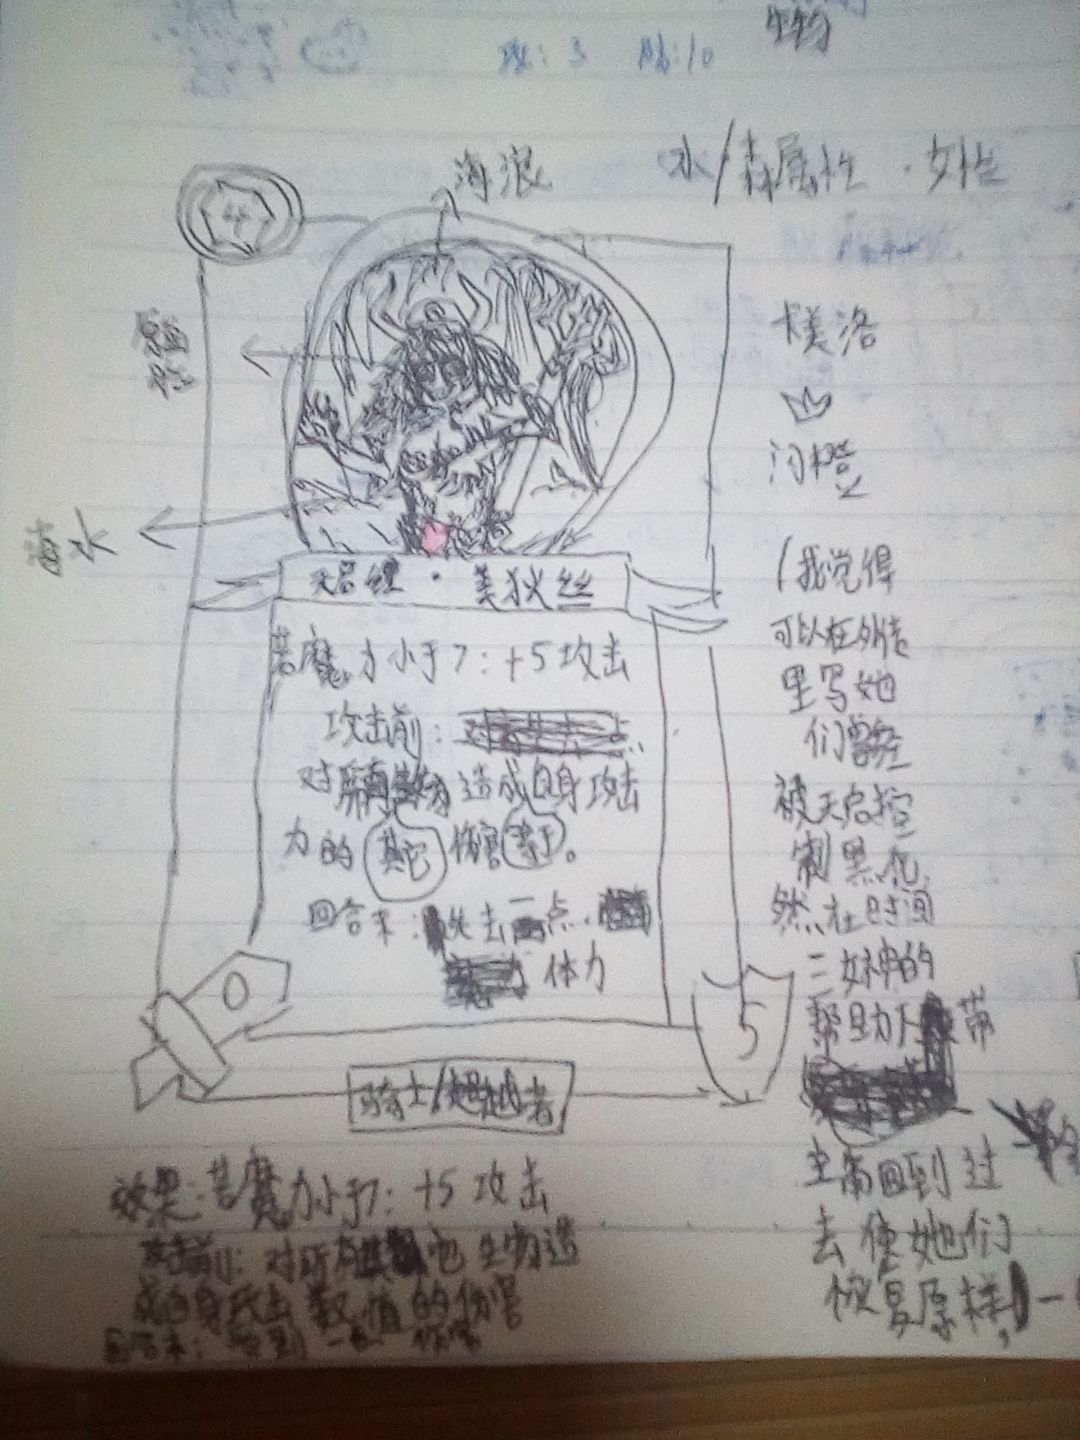 生物
攻:5 脉:10
海浪
水/森属性·女性
4
卡美洛
闪橙
海水
天启缇·美狄丝
若魔力小于7:+5攻击
攻击前:
对所有生物造成自身攻击
力的其它伤害等于。
回合末:失去一点
体力
0
5
骑士/超越者
(我觉得
可以在外传
里写她
们曾经
被天启控
制黑化,
然在时间
三女神的
帮助下带
主角回到过
去使她们
恢复原样,
效果:若魔力小于7:+5攻击
攻击前:对所有其它生物造
成自身攻击数值的伤害
回合末:受到一点伤害